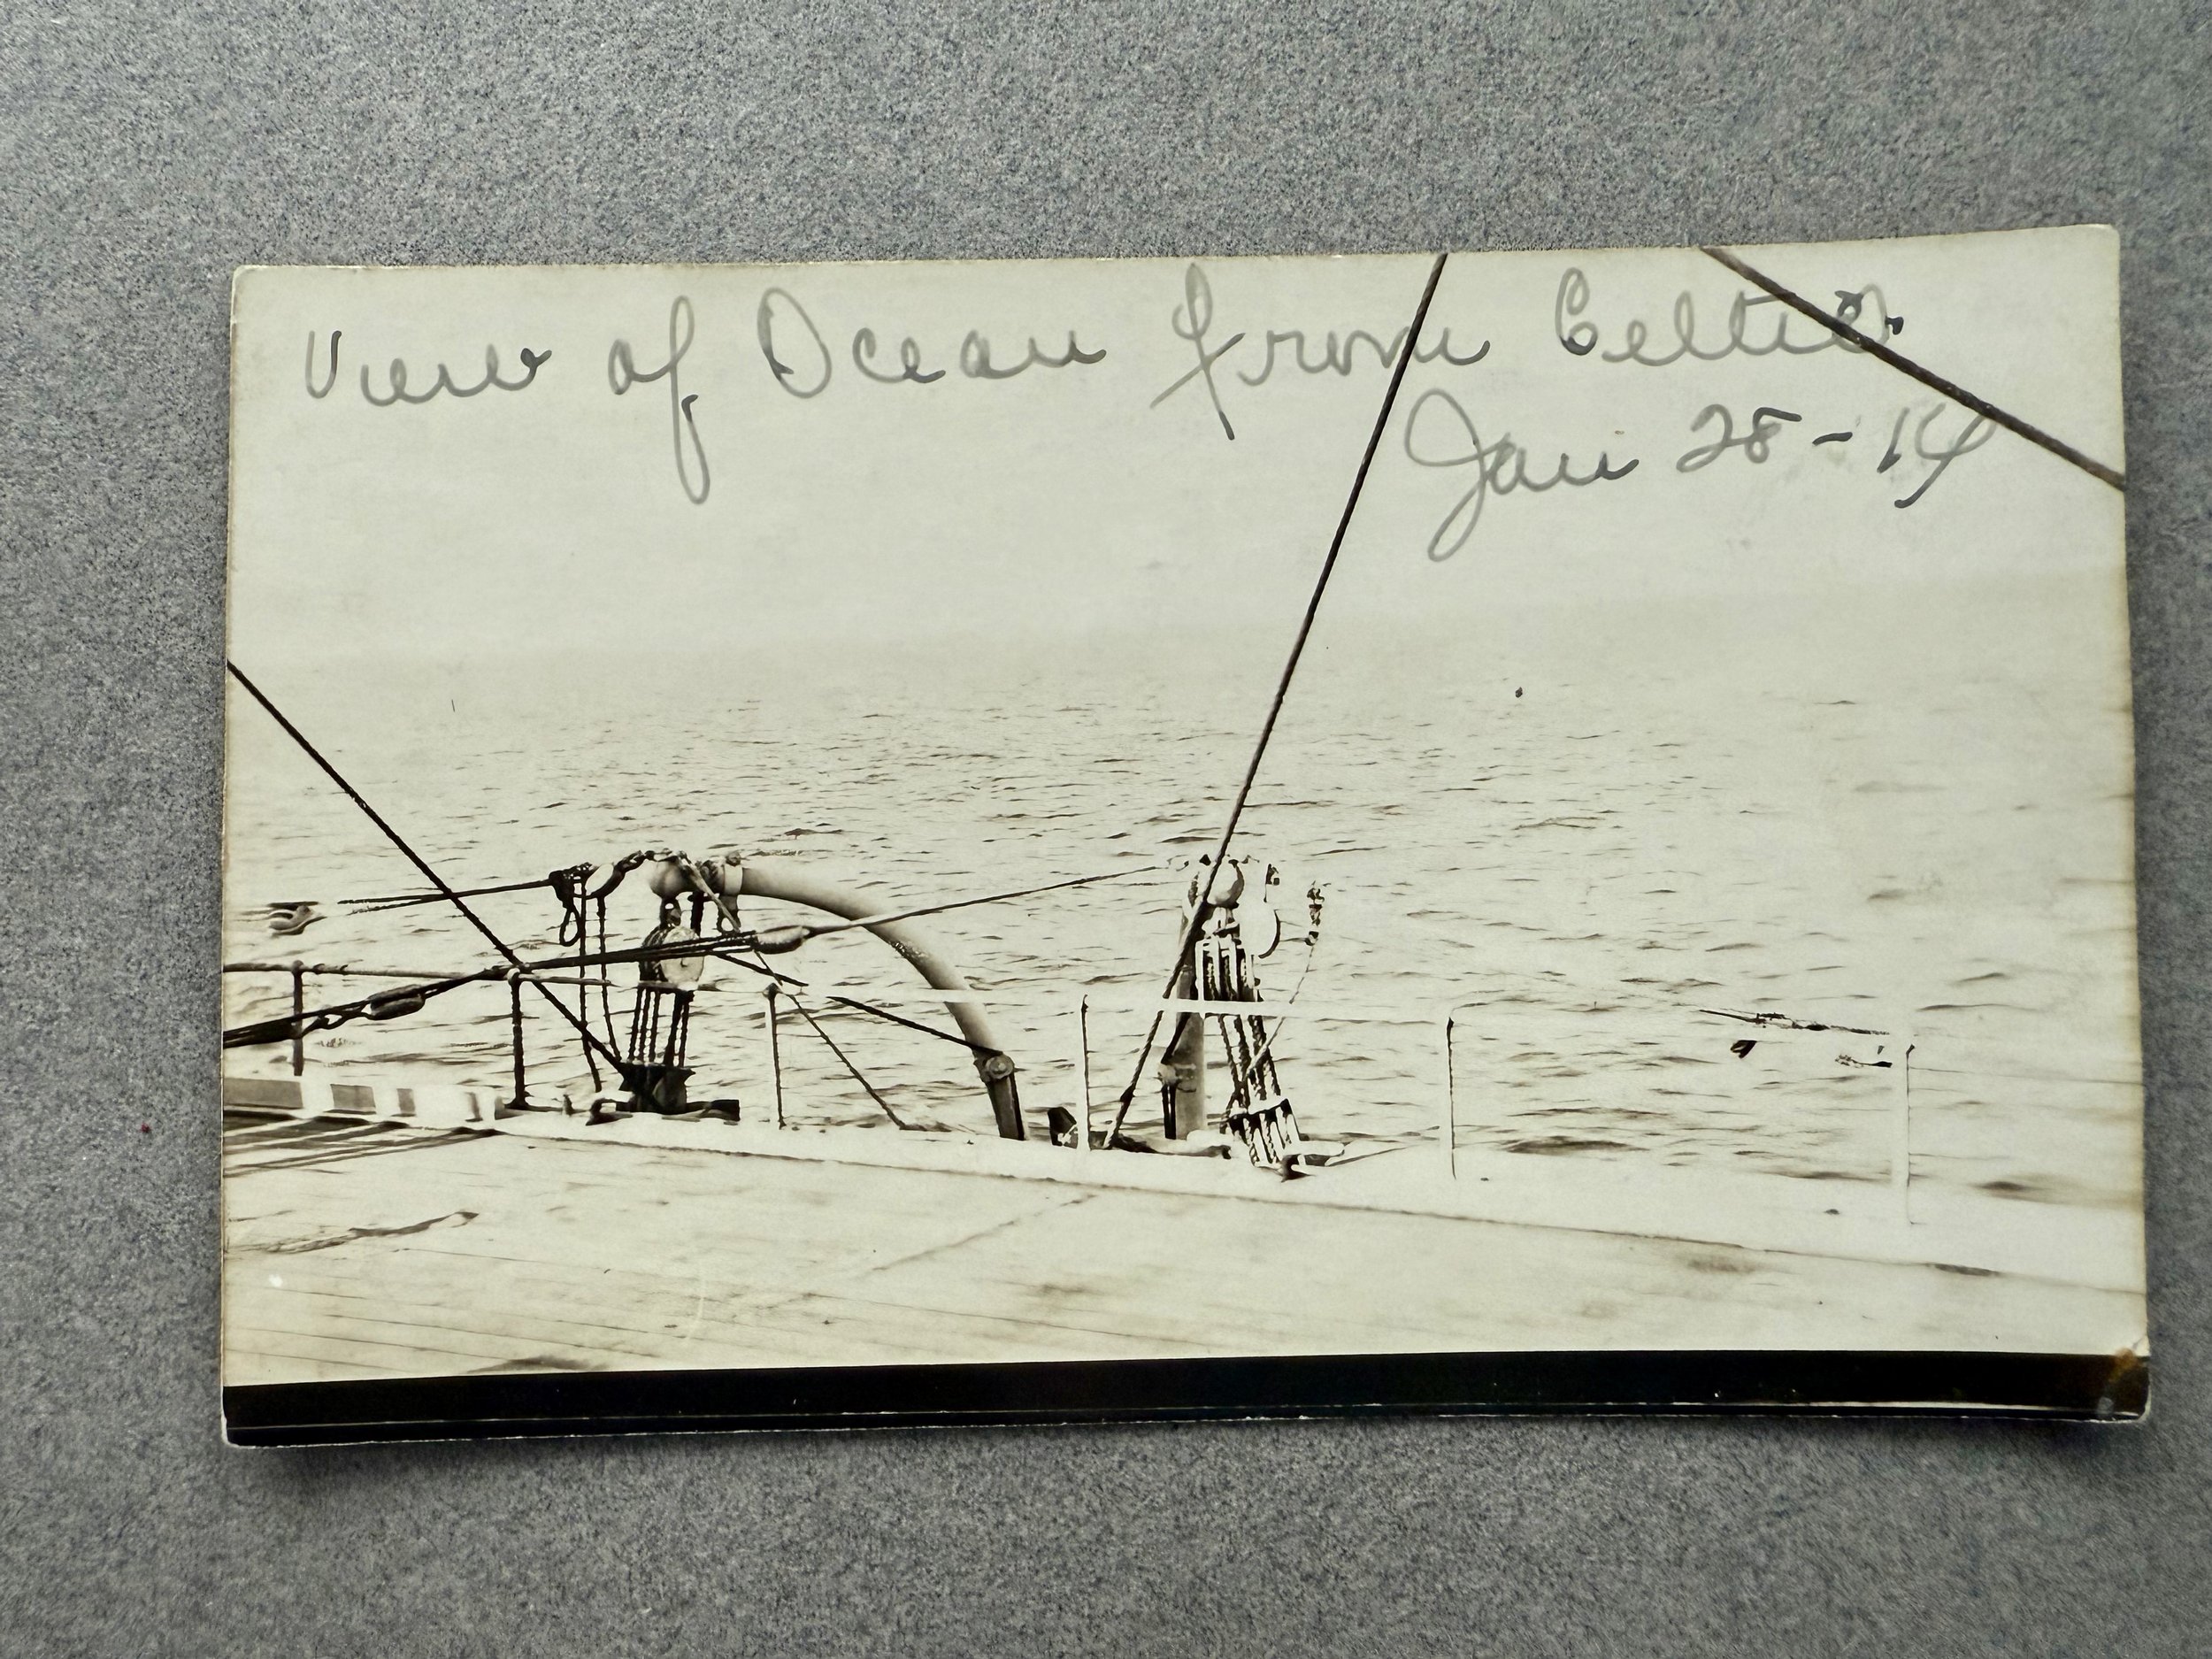 View of Ocean from Celtic
Jan 28-14